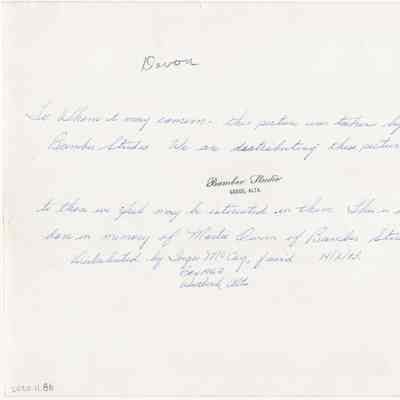 Devon
To Whom it may concern - this picture was taken by
Bambor Studio We are destributing these pictur
Bambor Studio
LEDUC, ALTA.
to those we feel may be interested in them This is
done in memory of of Bambor Stu
Distributed by McCoy, found 14/2/83.
Box
Alta
2020.11.86